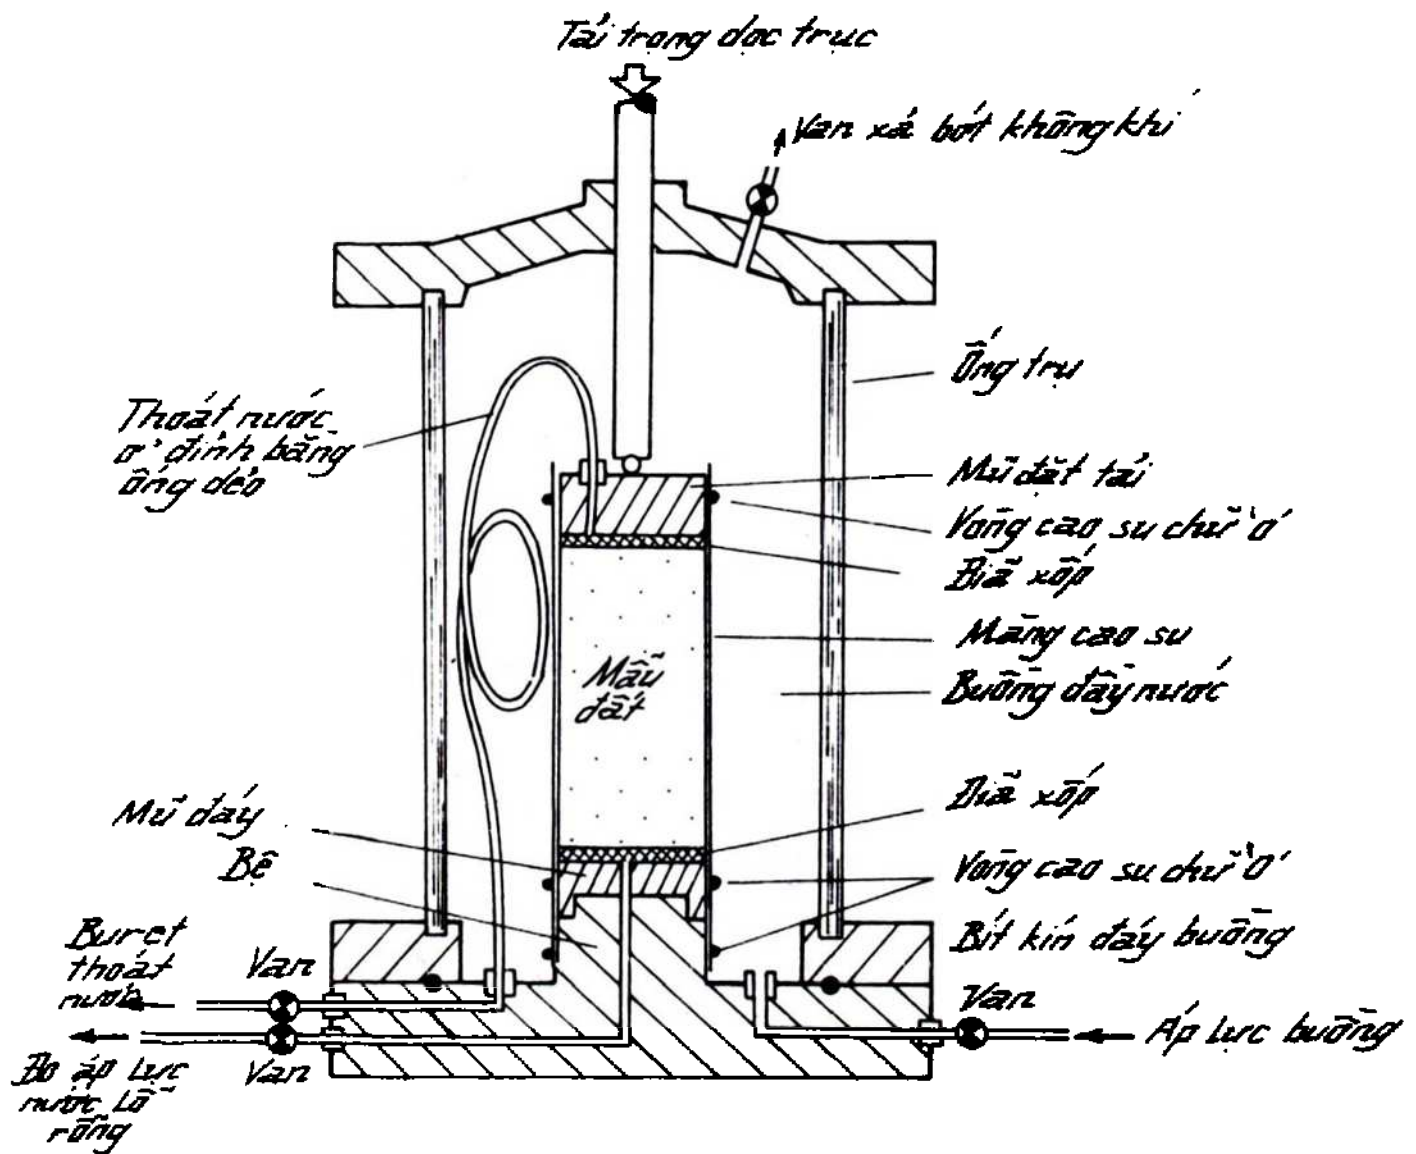 Tải trọng dọc trục
Van xả bớt không khí
Ống trụ
Thoát nước
ở đỉnh bằng
ống dẻo
Mũ đặt tải
Vòng cao su chữ 'o'
Đĩa xốp
Màng cao su
Buồng đầy nước
Mẫu
đất
Đĩa xốp
Mũ đáy
Bệ
Vòng cao su chữ 'o'
Bít kín đáy buồng
Buret
thoát
nước
Van
Van
Áp lực buồng
Đo áp lực
nước lỗ
rỗng
Van